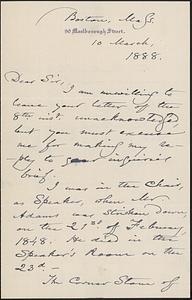 Boston, Mass.
90 Marlborough Street.
10 March,
1888.
Dear Sir,
I am unwilling to
leave your letter of the
8th inst. unacknowledged,
but you must excuse
me for making my re-
ply to your inquiries
brief.
I was in the Chair,
as Speaker, when Mr
Adams was stricken down
on the 21st of February,
1848. He died in the
Speaker's Room on the
23d -
The Corner Stone of